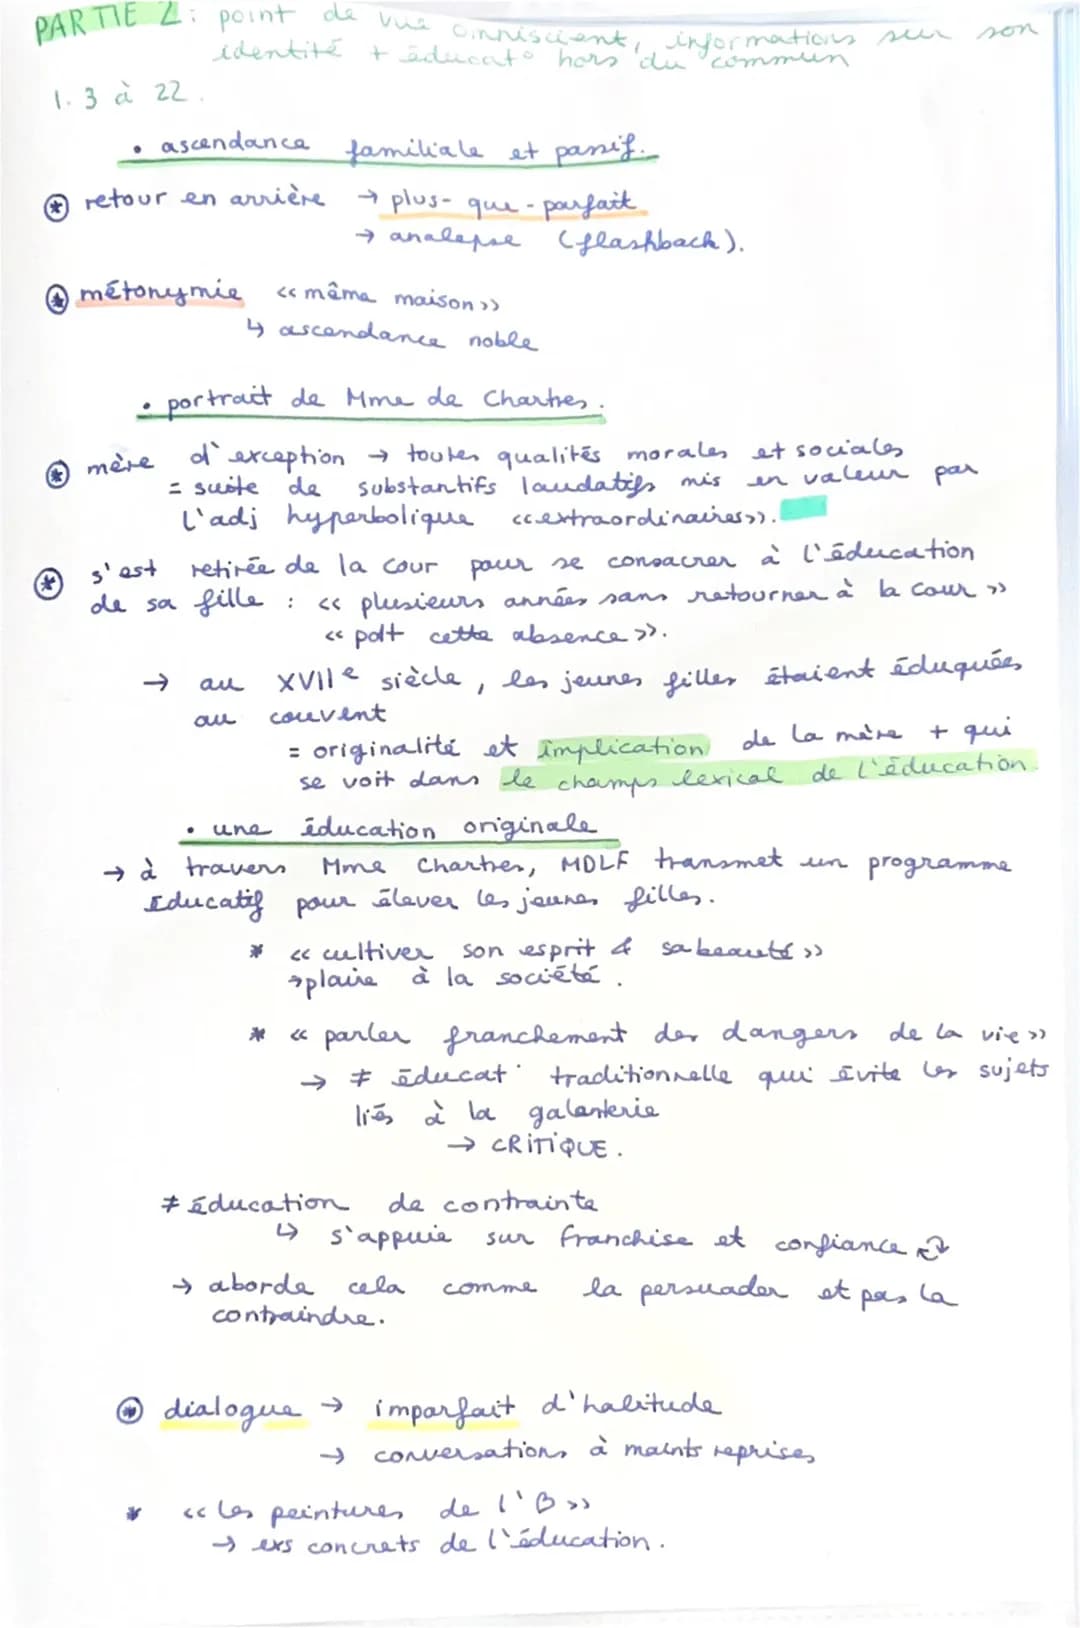 PARTIE 2 : point de vue omniscient, informations sur son
identité + éducat° hors du commun
l. 3 à 22.
• ascendance familiale et passif.
* retour en arrière → plus-que-parfait
→ analepse (flashback).
* métonymie << même maison >>
↳ ascendance noble
• portrait de Mme de Chartres.
* mère d'exception → toutes qualités morales et sociales
= suite de substantifs laudatifs mis en valeur par
l'adj hyperbolique <<extraordinaires>>.
* s'est retirée de la cour pour se consacrer à l'éducation
de sa fille : << plusieurs années sans retourner à la cour >>
<< pdt cette absence >>.
→ au XVIIe siècle, les jeunes filles étaient éduquées
au couvent
= originalité et implication de la mère + qui
se voit dans le champs lexical de l'éducation.
• une éducation originale
→ à travers Mme Chartres, MDLF transmet un programme
Educatif pour élever les jeunes filles.
* << cultiver son esprit & sa beauté >>
→ plaire à la société.
* << parler franchement des dangers de la vie >>
→ ≠ éducat° traditionnelle qui évite les sujets
liés à la galanterie
→ CRITIQUE.
≠ éducation de contrainte
↳ s'appuie sur franchise et confiance
→ aborde cela comme la persuader et pas la
contraindre.
* dialogue → imparfait d'habitude
→ conversations à maints reprises
* << les peintures de l'B >>
→ exs concrets de l'éducation.